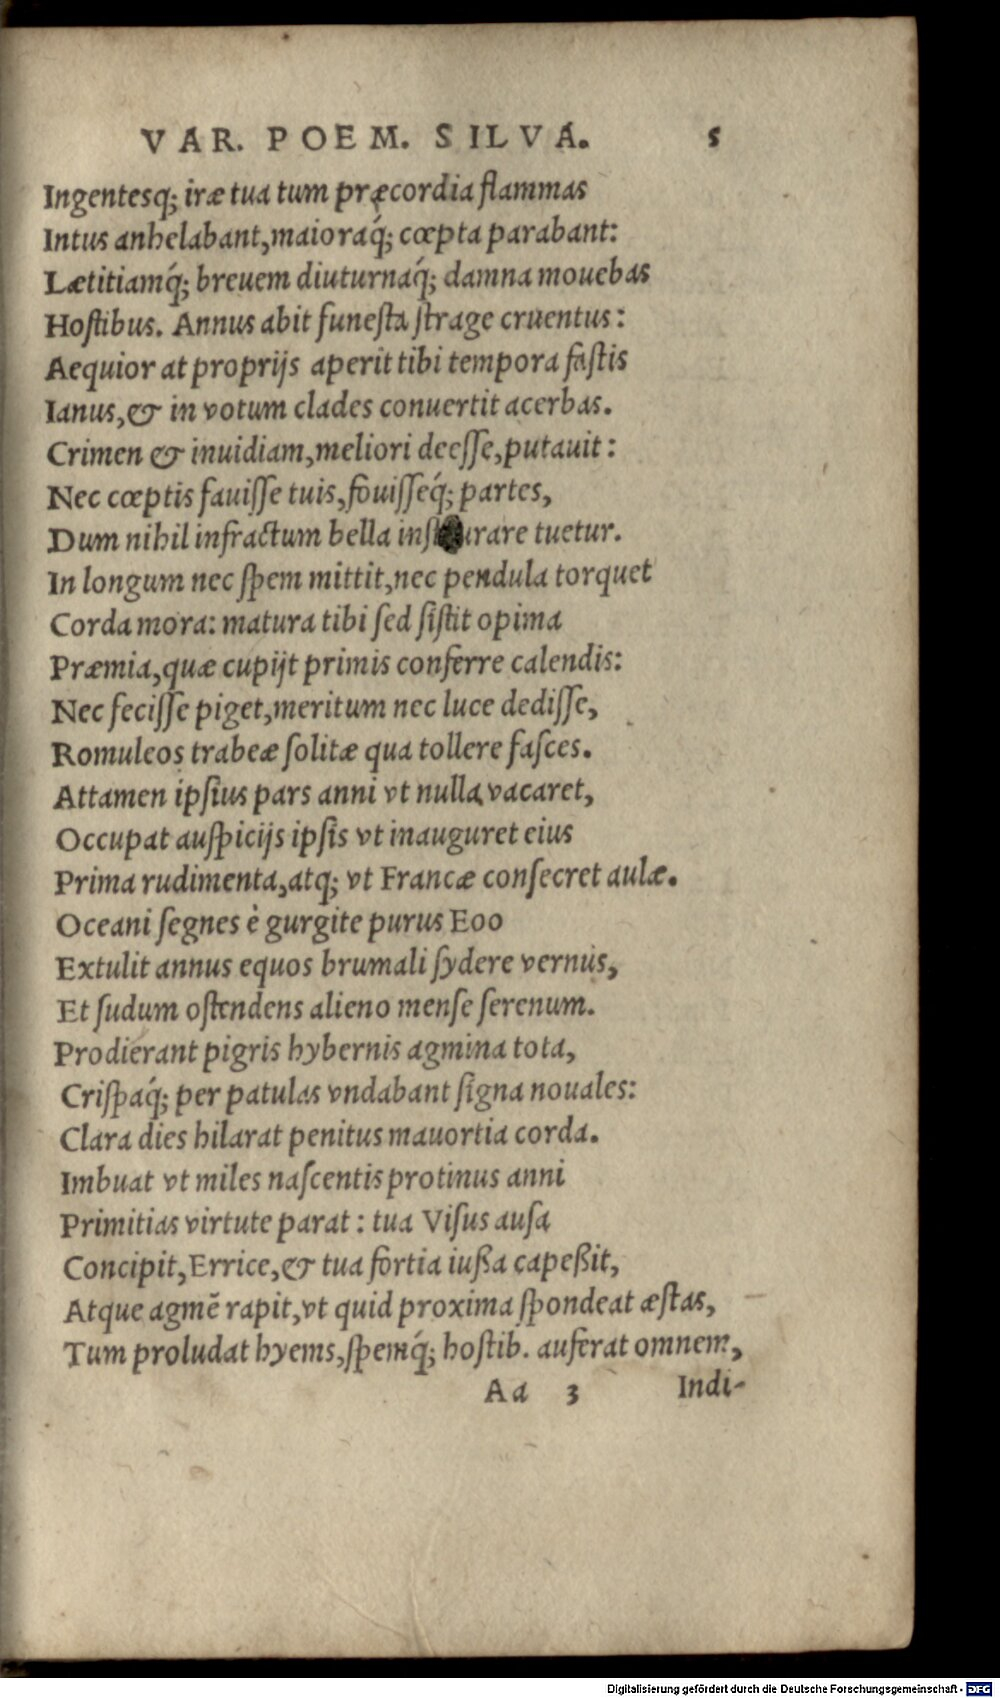 VAR. POEM. SILVA. 5
Ingentesq; iræ tua tum præcordia flammas
Intus anhelabant, maioraq́; cœpta parabant:
Lætitiamq́; breuem diuturnaq́; damna mouebas
Hoſtibus. Annus abit funeſta ſtrage cruentus:
Aequior at proprijs aperit tibi tempora faſtis
Ianus, & in votum clades conuertit acerbas.
Crimen & inuidiam, meliori deeſſe, putauit:
Nec cœptis fauiſſe tuis, fouiſſeq́; partes,
Dum nihil infractum bella urare tuetur.
In longum nec ſpem mittit, nec pendula torquet
Corda mora: matura tibi ſed ſiſtit opima
Præmia, quæ cupijt primis conferre calendis:
Nec feciſſe piget, meritum nec luce dediſſe,
Romuleos trabeæ ſolitæ qua tollere faſces.
Attamen ipſius pars anni vt nulla vacaret,
Occupat auſpicijs ipſis vt inauguret eius
Prima rudimenta, atq; vt Francæ conſecret aulæ.
Oceani ſegnes è gurgite purus Eoo
Extulit annus equos brumali ſydere vernus,
Et ſudum oſtendens alieno menſe ſerenum.
Prodierant pigris hybernis agmina tota,
Criſpaq́; per patulas vndabant ſigna nouales:
Clara dies hilarat penitus mauortia corda.
Imbuat vt miles naſcentis protinus anni
Primitias virtute parat: tua Viſus auſa
Concipit, Errice, & tua fortia iußa capeßit,
Atque agmē rapit, vt quid proxima ſpondeat æſtas,
Tum proludat hyems, ſpemq́; hoſtib. auferat omnem,
Aa 3 Indi-
Digitalisierung gefördert durch die Deutsche Forschungsgemeinschaft - DFG